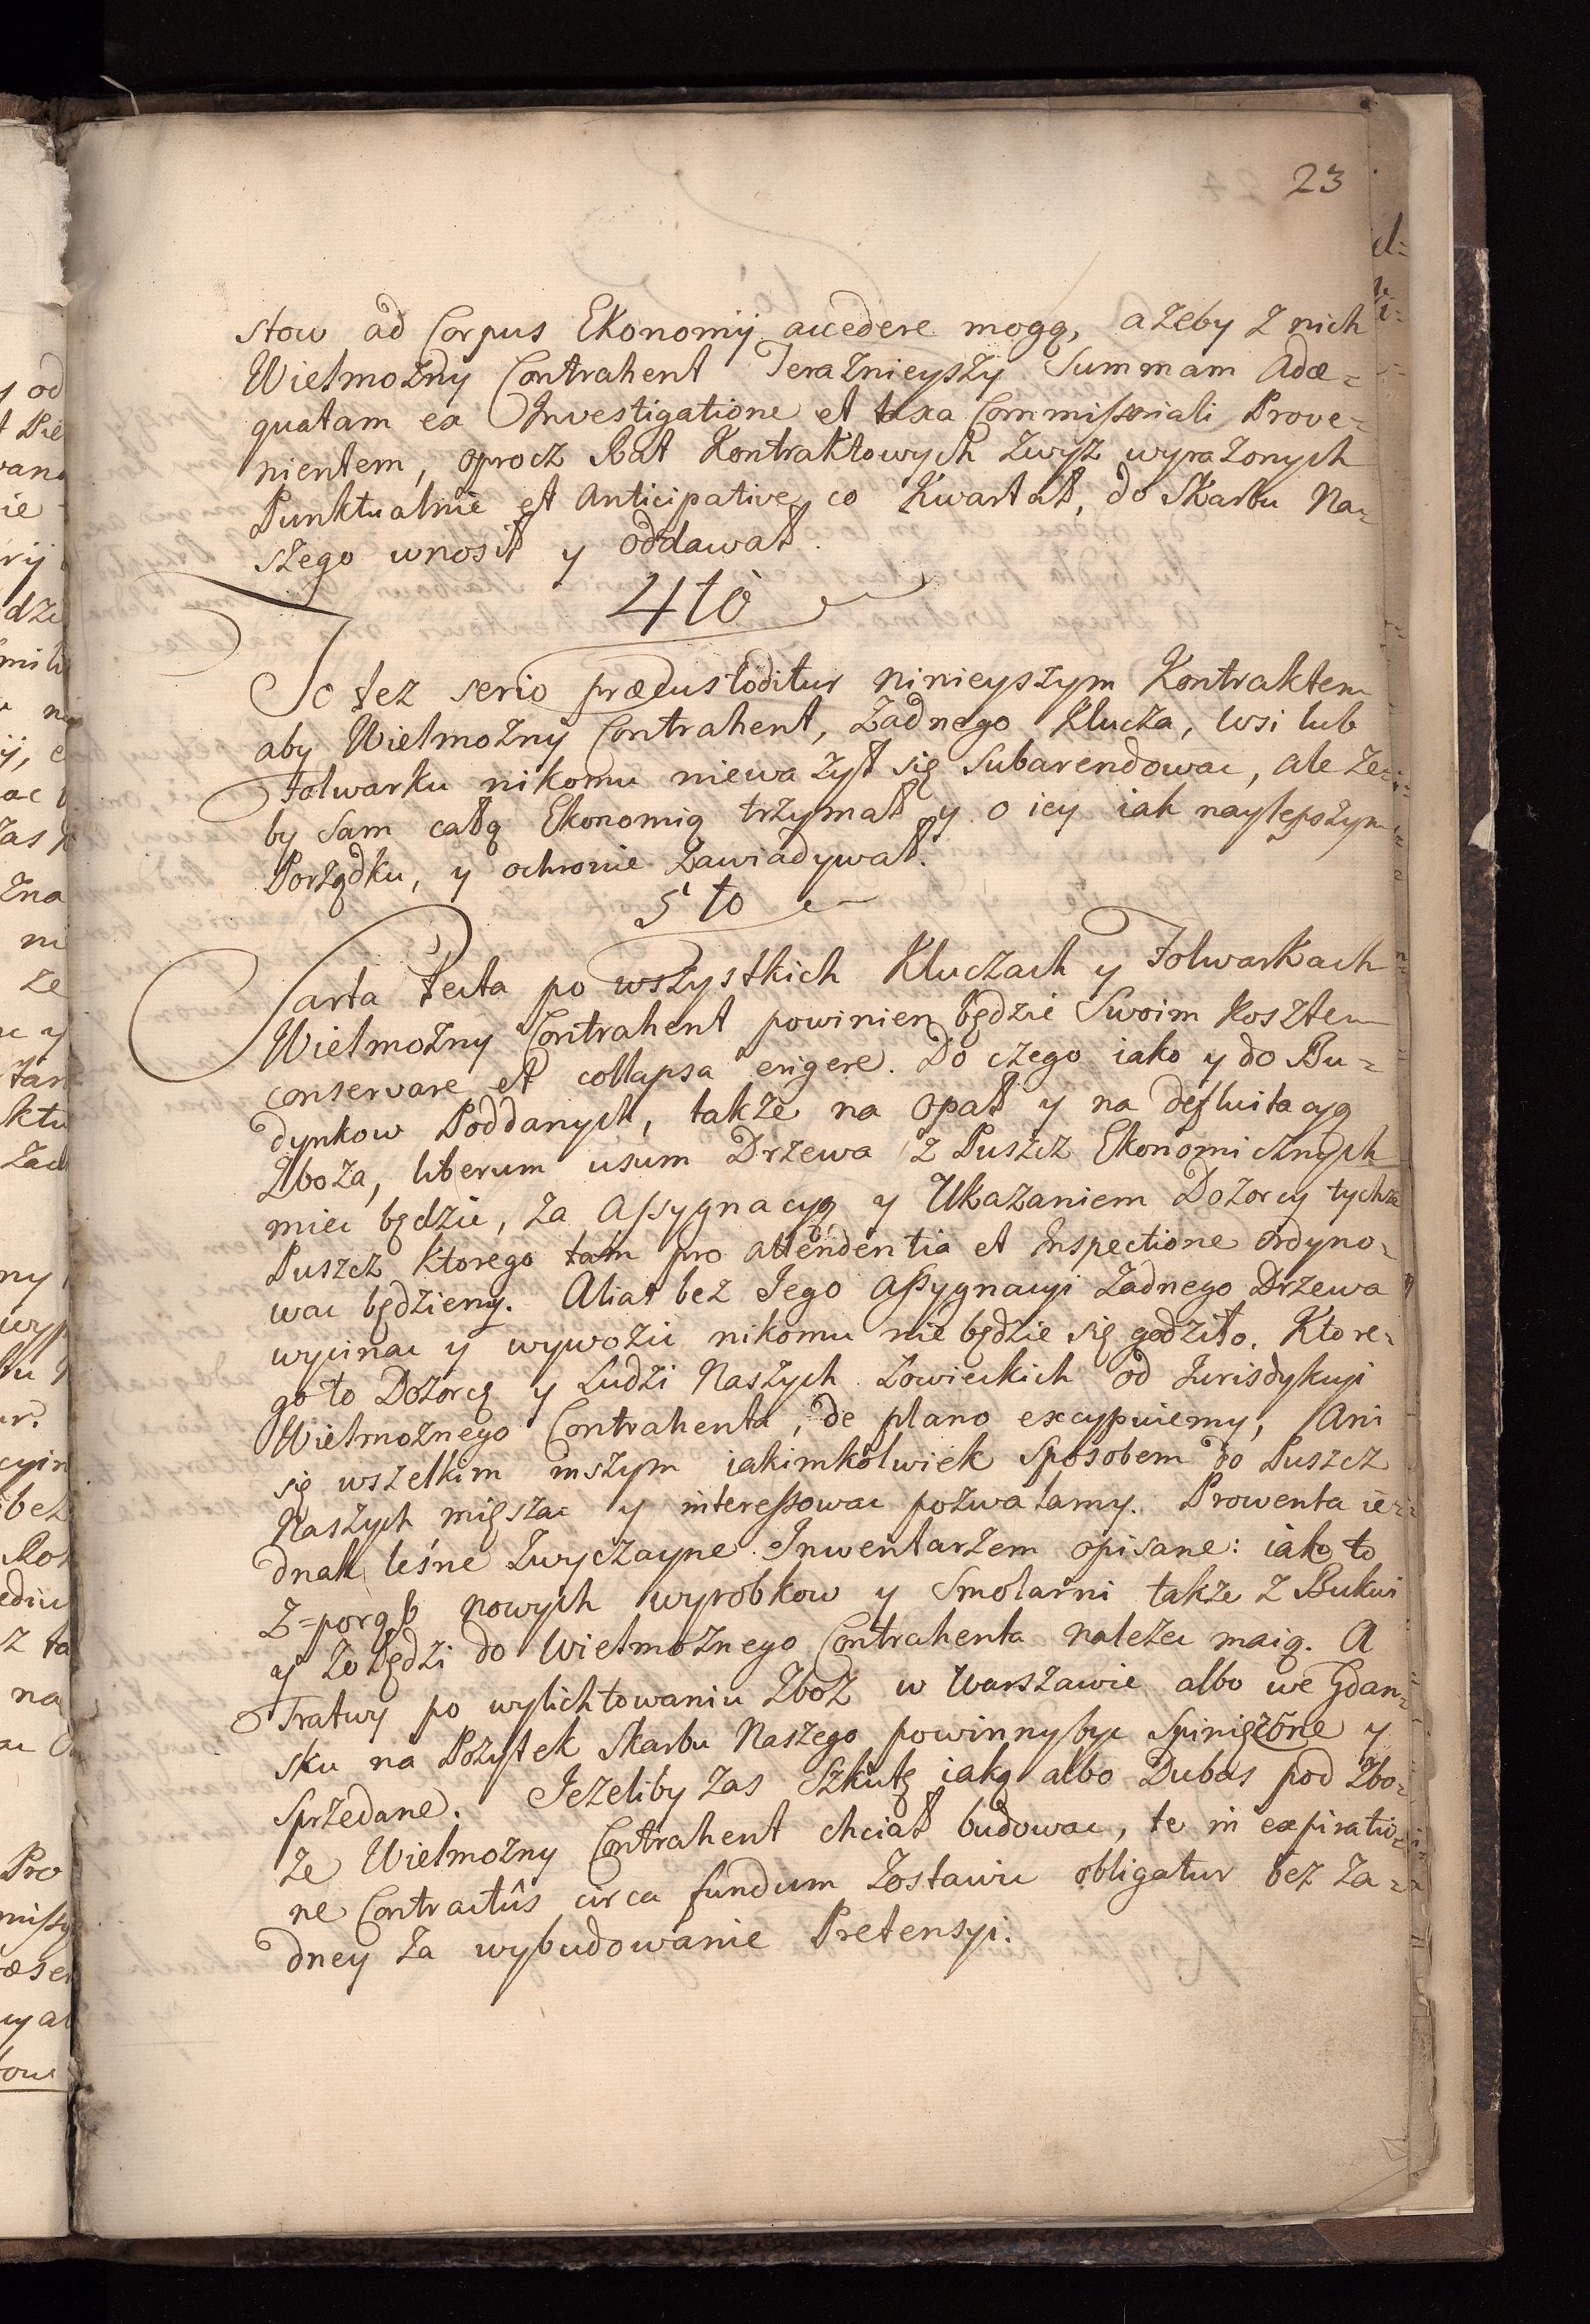 23
stow ad Corpus Ekonomij accedere mogą, ażeby z nich
Wielmożny Contrahent Teraznieyszy Summam Adæ=
quatam ex Investigatione et taxa Commissoriali Prove=
nientem, oprocz Rat Kontraktowych zwyz wyrażonych
Punktualnie et Anticipative co Kwartał, do Skarbu Na=
szego wnosił y oddawał.
4to
To tez serio præcustoditur ninieyszym Kontraktem
aby Wielmożny Contrahent, żadnego Klucza, wsi lub
Folwarku nikomu nieważył się Subarendowac, ale że=
by Sam całą Ekonomią trzymał y o iey iak naylepszym
Porządku, y ochronie zawiadywał.
5to
Sarta Tecta po wszystkich Kluczach y Folwarkach
Wielmożny Contrahent powinien będzie Swoim Kosztem
conservare et collapsa erigere. Do czego iako y do Bu=
dynkow Poddanych, także na opał y na defluitacyą
Zboża, liberum usum Drzewa z Puszcz Ekonomicznych
miec będzie, za Assygnacyą y Ukazaniem Dozorcy tychże
Puszcz Ktorego tam pro attendentia et Inspectione ordyno=
wac będziemy. Alias bez Jego Assygnacyi żadnego Drzewa
wycinac y wywozic nikomu nie będzie się godziło. Ktore=
go to Dozorcę y Ludzi Naszych Łowieckich od Jurisdykcyi
Wielmożnego Contrahenta, de plano excypuiemy, Ani
się wszelkim inszym iakimkolwiek Sposobem do Puszcz
Naszych mięszac y interessowac pozwalamy. Prowenta ie=
dnak leśne zwyczayne Inwentarzem opisane: iako to
Z=porąb nowych wyrobkow y Smolarni także z Bukwi
y Żołędzi do Wielmożnego Contrahenta należec maią. A
Tratwy po wylichtowaniu Zboż w Warszawie albo we Gdan=
sku na Pożytek Skarbu Naszego powinny byc Spiniężone y
Sprzedane. Jeżeliby zas Szkutę iaką albo Dubas pod Zbo=
że Wielmożny Contrahent chciał budowac, te in expiratio=
ne Contractûs circa fundum zostawic obligatur bez ża=
dney za wybudowanie Pretensyi.